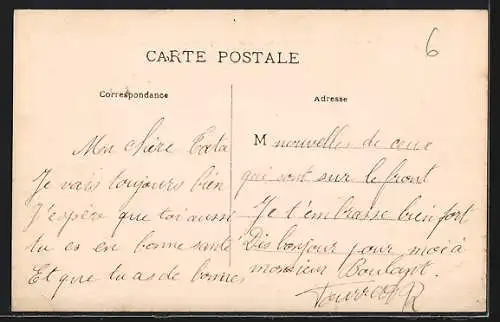 6
CARTE POSTALE
Correspondance
Adresse
Mon chère Tata
Je vais toujours bien
J'espère que toi aussi
tu es en bonne santé
Et que tu as de bonnes
M nouvelles de ceux
qui sont sur le front
Je t'embrasse bien fort
Dis bonjour pour moi à
monsieur Boulant.